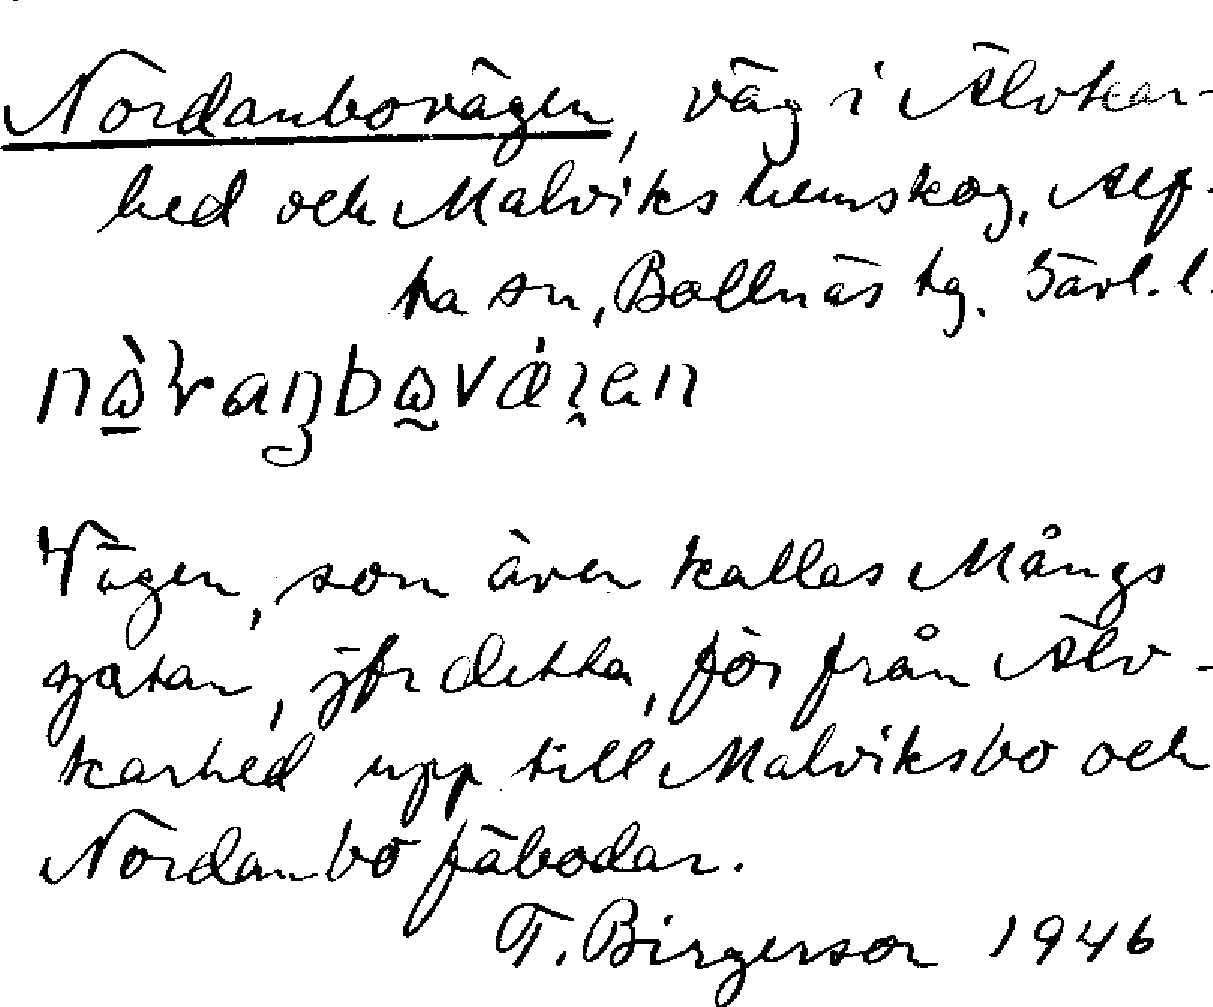 Nordanbovägen, väg i Älvkar-
hed och Malviks hemskog, Alf-
ta sn, Bollnäs tg. Gävl. l.
Vägen, som även kallas Mångs
gatan, jfr detta, för från Älv-
karhed upp till Malviksbo och
Nordanbo fäbodar.
T. Birgerson 1946